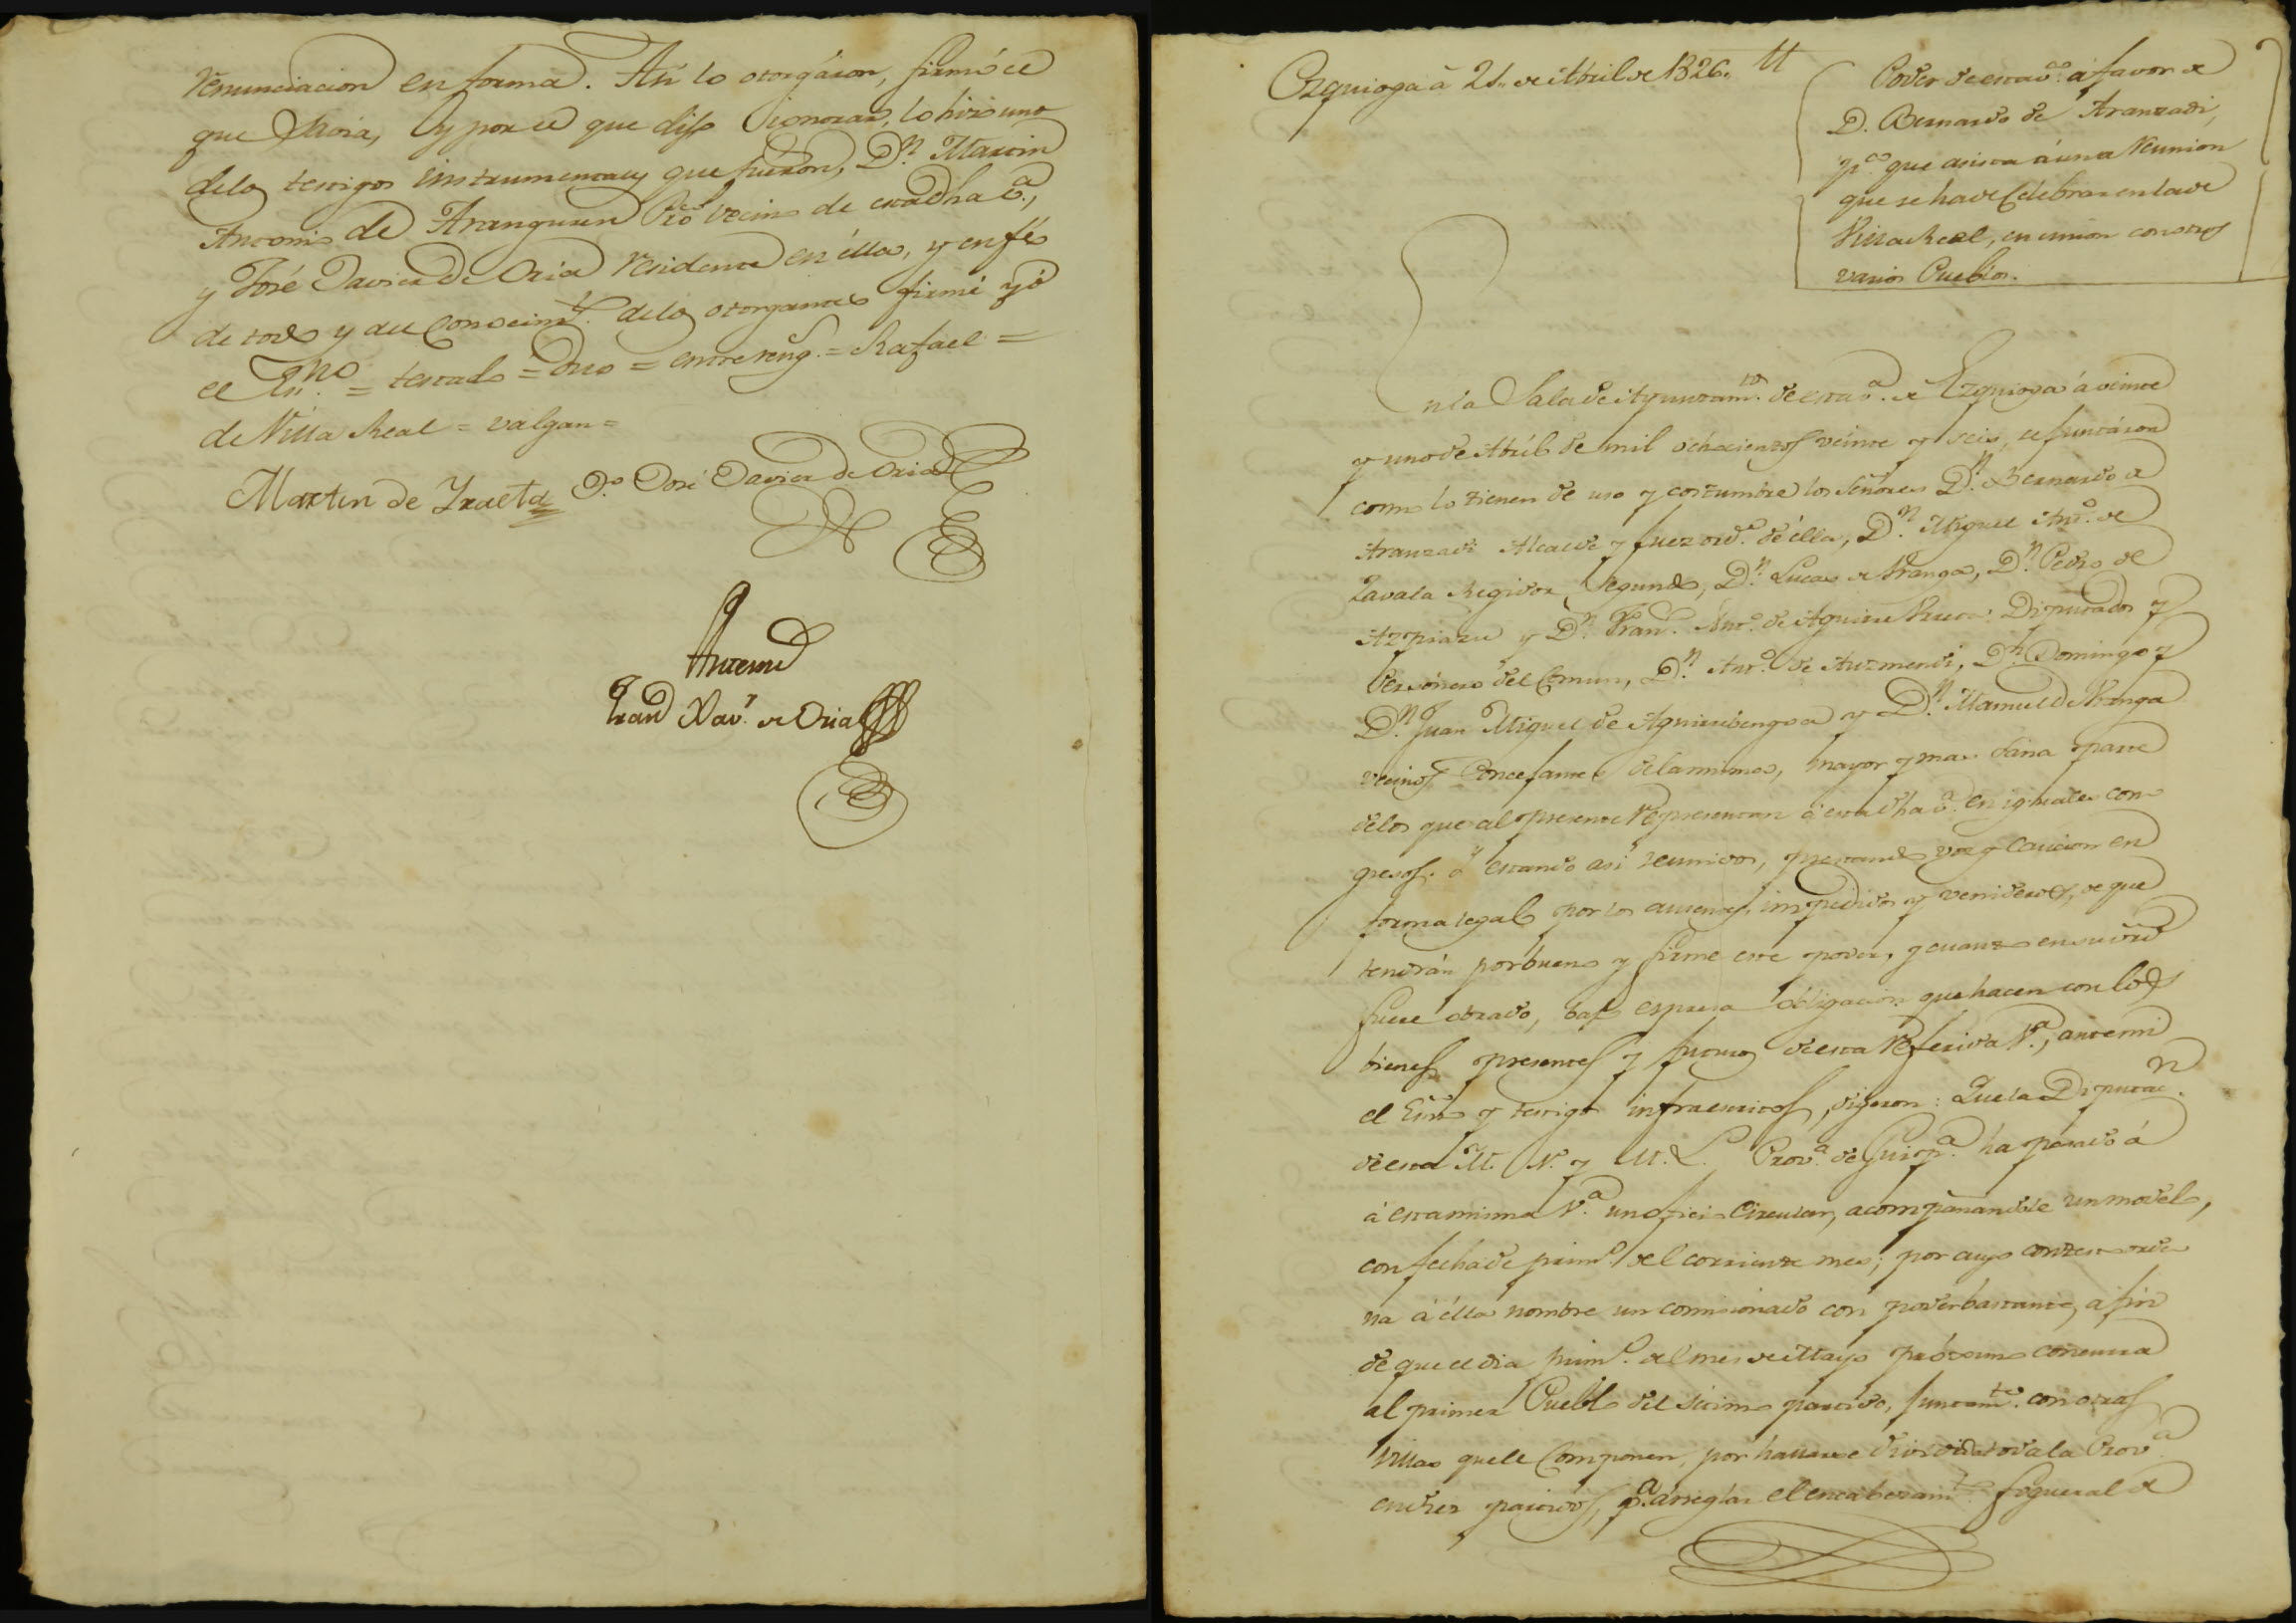 renunciacion en forma. Asi lo otorgáron, firmó el
que savia, y por el que dijo ignorar, lo hizo uno
de los testigos instrumentales que fuéron, Dn. Martin
Antonio de Aranguren Pro. vecino de esta dha va.,
y José Xavier de Oria residente en ella, y en fé
de todo y del conocimto. de los otorgantes firmé yó
el Esno. = testado = Dno = entrereng. = Rafael =
de Villa Real = valgan =
Martin de Yraeta Dn. José Xavier de Oria
Antemi
Fran Xavr. de Oria
Ezquioga á 21. de Abril de 1826. M
Poder de esta va. á favor de
D. Bernardo de Aranzadi,
pa. que asista á una reunion
que se ha de Celebrar en la de
Villa Real, en union con otros
varios Pueblos.
En la Sala de Ayuntamto. de esta va. de Ezquioga á veinte
y uno de Abril de mil ochocientos veinte y seis, se juntáron
como lo tienen de uso y costumbre los Señores Dn. Bernardo de
Aranzadi Alcalde y Juez ordo. de élla, Dn. Miguel Anto. de
Zavala Regidor Segundo, Dn. Lucas de Aranga, Dn. Pedro de
Azpiazu y Dn. Franco. Anto. de Aguirre Diputados y
Personero del Comun, Dn. Anto. de Auzmendi, Dn. Domingo y
Dn. Juan Miguel de Aguirrebengoa y Dn. Manuel de Aranga
vecinos Concejantes de la misma, mayor y mas sana parte
de los que al presente representan á esta dha va. en iguales con-
gresos. y estando asi reunidos, prestando voz y caucion en
forma legal por los ausentes, impedidos y venideros, de que
tendrán por bueno y firme este poder, y cuanto en su virtd
fuere obrado, bajo espresa obligacion que hacen con los
bienes presentes y futuros de esta referida Va., antemi
el Esno. y testigos infraescritos, digeron: Que la Diputacn.
de esta M. N. y M. L. Prova. de Guipa. ha pasado á
á esta misma Va. un oficio Circular, acompañandole un modelo,
con fecha de primo. del corriente mes; por cuyo contesto orde-
na á élla nombre un comisionado con poder bastante, á fin
de que el dia primo. del mes de Mayo próximo concurra
al primer Pueblo del sécimo partido, juntamte. con otras
villas que le componen, por hallarse dividida toda la Prova.
en diez partidos, pa. arreglar el encabezamto. fogueral de